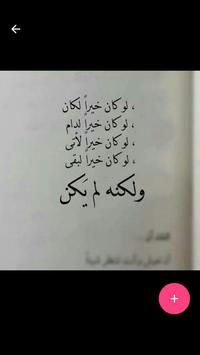 ، لو كان خيراً لكان
، لو كان خيراً لدام
، لو كان خيراً لأتى
، لو كان خيراً لبقى
ولكنه لم يَكن